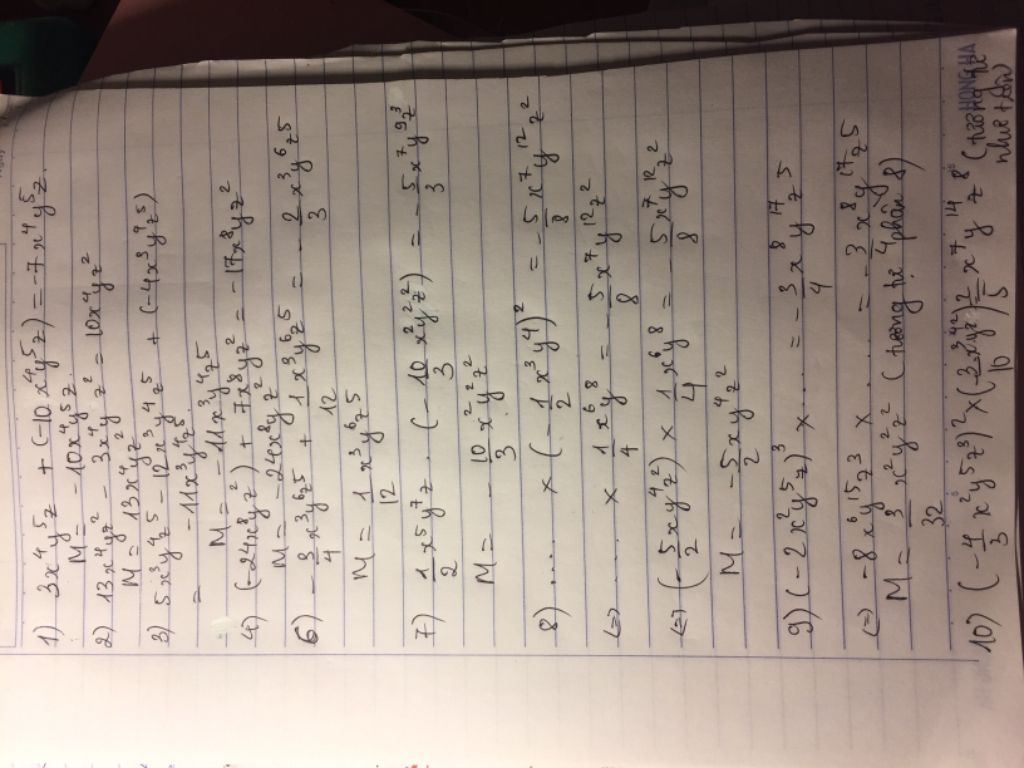 1) 3x⁴y⁵z + (-10x⁴y⁵z) = -7x⁴y⁵z.
M = -10x⁴y⁵z
2) 13x⁴yz² - 3x⁴yz² = 10x⁴yz²
M = 13x⁴yz²
3) 5x³y⁴z⁵ - 12x³y⁴z⁵ + (-4x³y⁴z⁵)
= -11x³y⁴z⁵
M = -11x³y⁴z⁵
4) (-24x⁸yz²) + 7x⁸yz² = -17x⁸yz²
M = -24x⁸yz²
6) -3/4x³y⁶z⁵ + 1/12x³y⁶z⁵ = -2/3x³y⁶z⁵
M = 1/12x³y⁶z⁵
7) 1/2x⁵y⁷z . (-10/3x²y²z²) = -5/3x⁷y⁹z³
M = -10/3x²y²z²
8) ..... × (-1/2x³y⁴)² = -5/8x⁷y¹²z²
(=) ..... × 1/4x⁶y⁸ = -5/8x⁷y¹²z²
(=) (-5/2xy⁴z²) × 1/4x⁶y⁸ = -5/8x⁷y¹²z²
M = -5/2xy⁴z²
9) (-2x²y⁵z)³ × ..... = -3/4x⁸y¹⁷z⁵
(=) -8x⁶y¹⁵z³ × ..... = -3/4x⁸y¹⁷z⁵
M = 3/32x²y²z² (tương tự phần 8)
HONG HA
10) (-4/3x²y⁵z³)² × (3/10x³y⁴z²) 2/5x⁷y¹⁴z⁸
như trên)